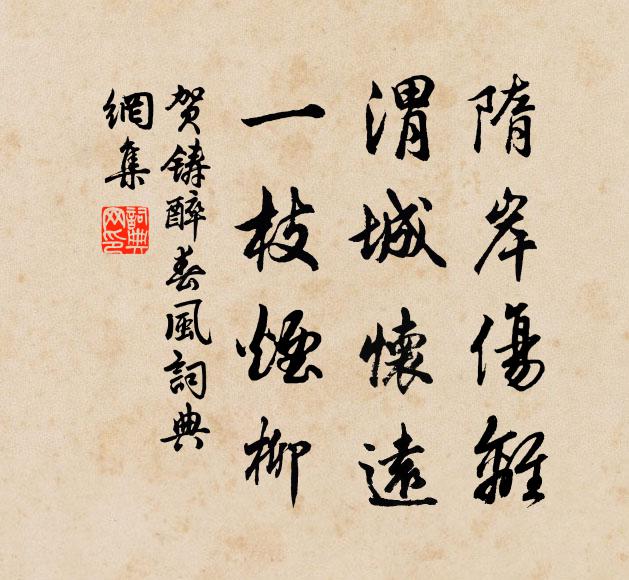 隋岸傷離
渭城懷遠
一枝煙柳
贺鑄醉春風詞典
網集
詞典網印